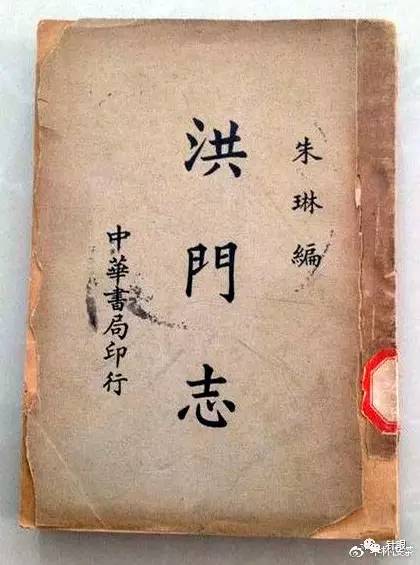 朱琳編
洪門志
中華書局印行